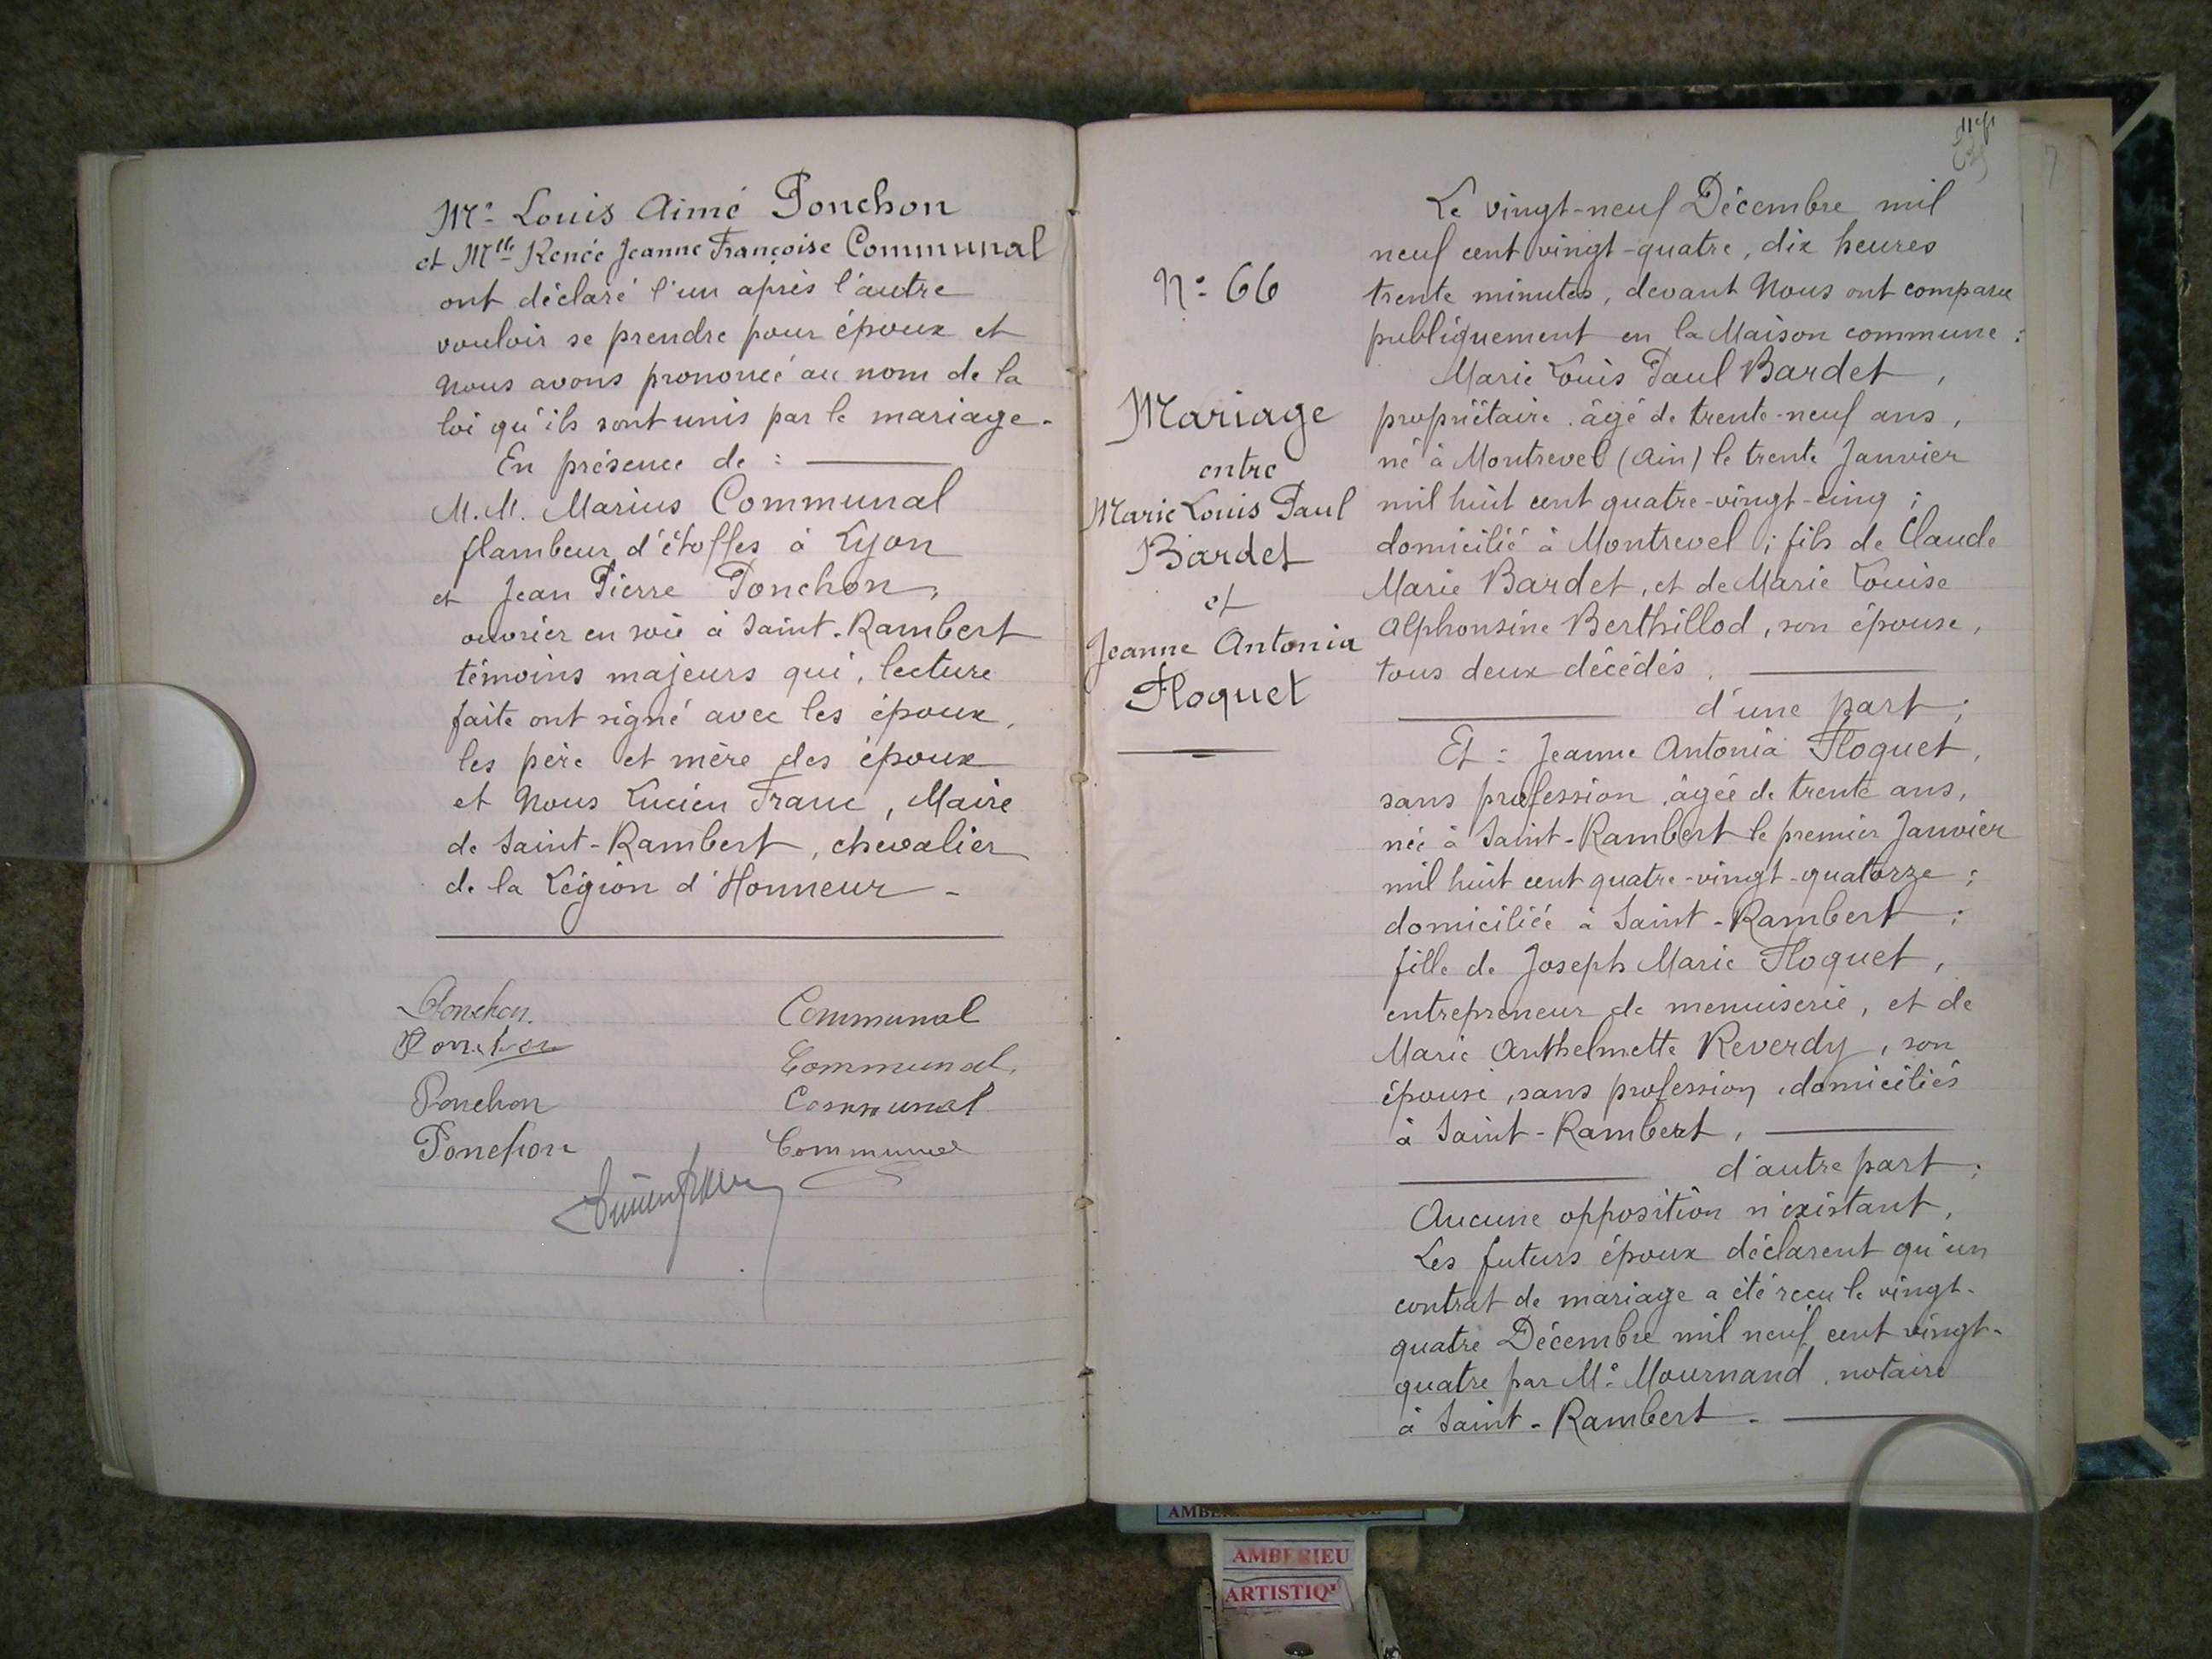 Mr Louis Aimé Ponchon
et Mlle Renée Jeanne Françoise Communal
ont déclaré l'un après l'autre
vouloir se prendre pour époux et
Nous avons prononcé au nom de la
loi qu'ils sont unis par le mariage.
En présence de :
M.M. Marius Communal
flambeur d'étoffes à Lyon
et Jean Pierre Ponchon,
ouvrier en soie à Saint-Rambert
témoins majeurs qui, lecture
faite ont signé avec les époux,
les père et mère des époux
et Nous Lucien Franc, Maire
de Saint-Rambert, chevalier
de la Légion d'Honneur -
Ponchon. Communal
Ponchon Communal.
Ponchon Communal
Ponchon Communal
N° 66
Mariage
entre
Marie Louis Paul
Bardet
et
Jeanne Antonia
Floquet
Le vingt-neuf Décembre mil
neuf cent vingt-quatre, dix heures
trente minutes, devant Nous ont comparu
publiquement en la Maison commune :
Marie Louis Paul Bardet,
propriétaire, âgé de trente-neuf ans,
né à Montrevel (Ain) le trente Janvier
mil huit cent quatre-vingt-cinq ;
domicilié à Montrevel ; fils de Claude
Marie Bardet, et de Marie Louise
Alphonsine Berthillod, son épouse,
tous deux décédés,
d'une part ;
Et : Jeanne Antonia Floquet,
sans profession, âgée de trente ans,
née à Saint-Rambert le premier Janvier
mil huit cent quatre-vingt-quatorze ;
domiciliée à Saint-Rambert ;
fille de Joseph Marie Floquet,
entrepreneur de menuiserie, et de
Marie Anthelmette Reverdy, son
épouse, sans profession, domiciliés
à Saint-Rambert,
d'autre part ;
Aucune opposition n'existant,
Les futurs époux déclarent qu'un
contrat de mariage a été reçu le vingt-
quatre Décembre mil neuf cent vingt-
quatre par Me Mournand, notaire
à Saint-Rambert -
AMBERIEU
ARTISTIQ